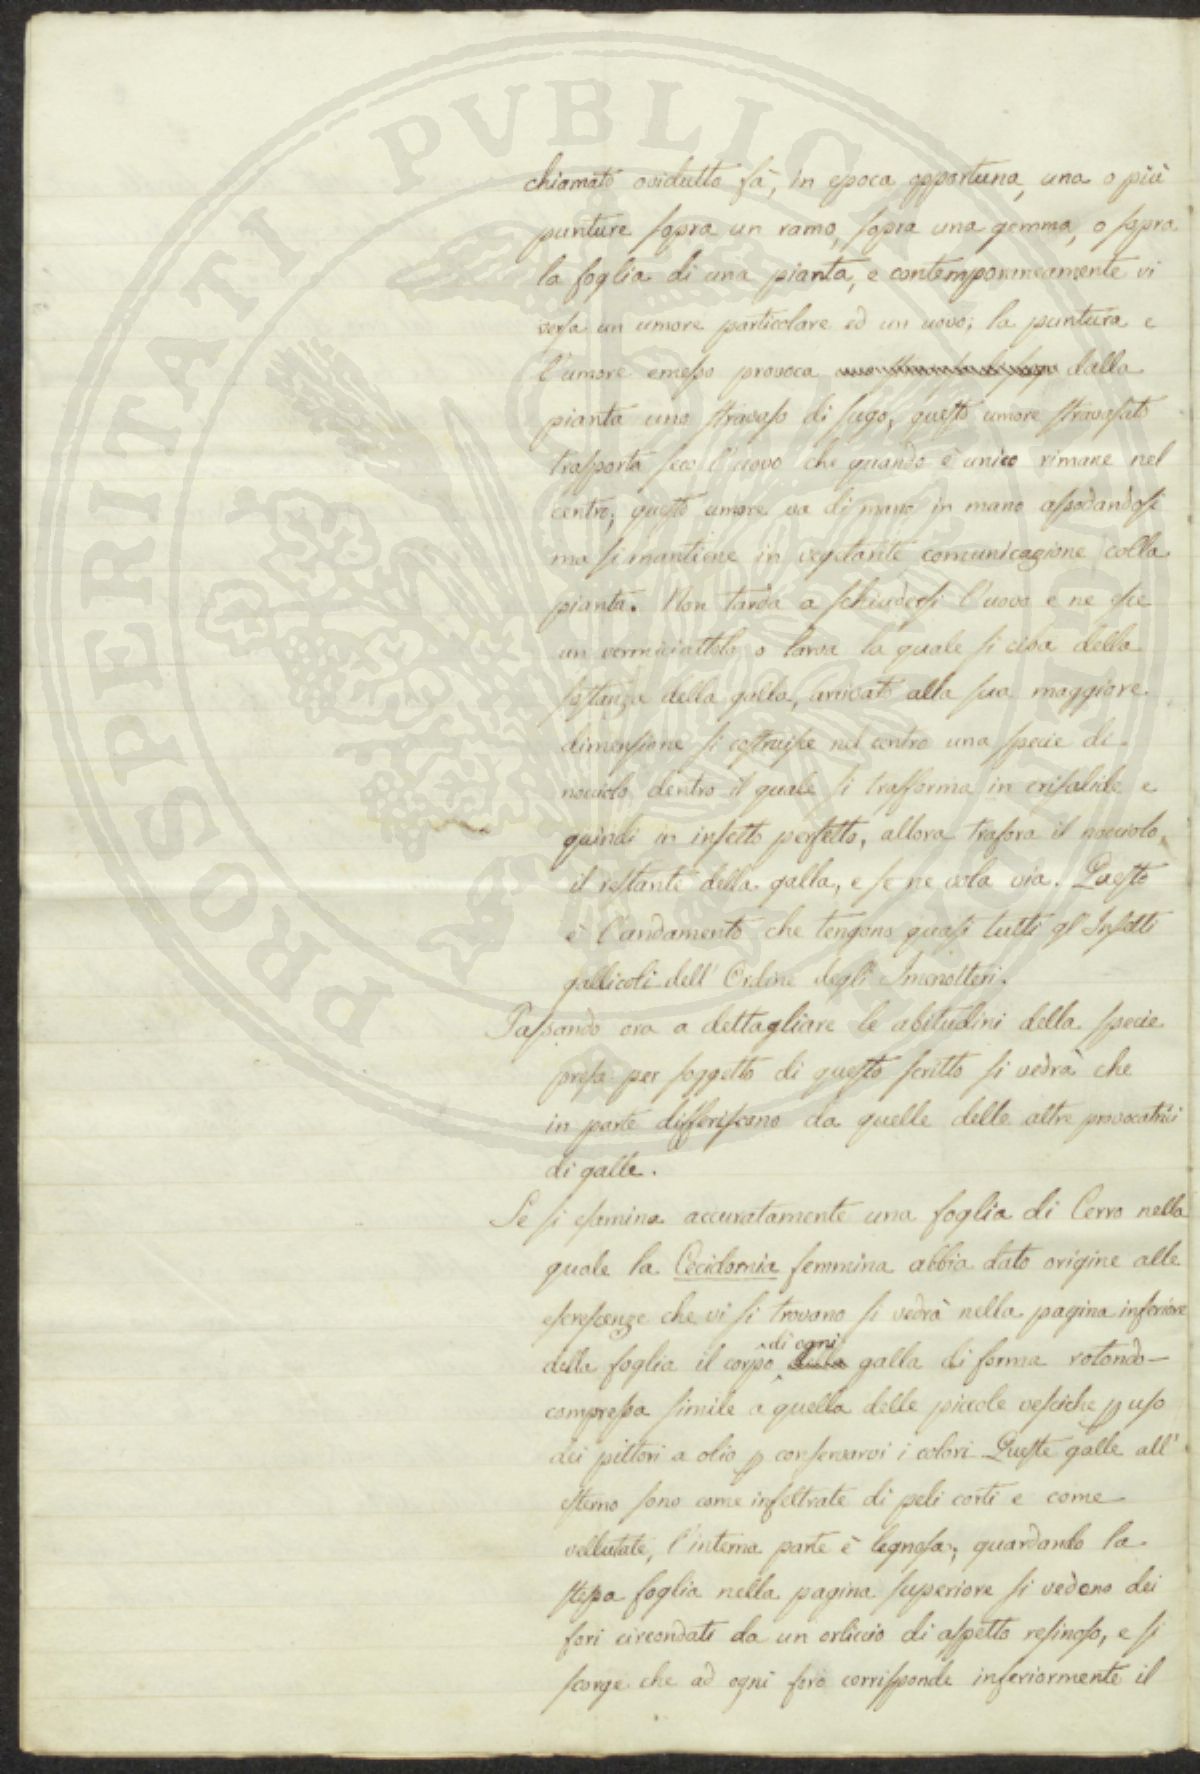 PROSPERITATI PUBLICAE AUGENDAE
chiamato ovidutto fà, in epoca opportuna, una o più
punture sopra un ramo, sopra una gemma, o sopra
la foglia di una pianta, e contemporaneamente vi
versa un umore particolare ed un uovo; la puntura e
l'umore emesso provoca dalla
pianta uno stravaso di sugo; questo umore stravasato
trasporta seco l'uovo che quando è unico rimane nel
centro; questo umore va di mano in mano assodandosi
ma si mantiene in vegetante comunicazione colla
pianta. Non tarda a schiudersi l'uovo e ne esce
un vermiciattolo o larva la quale si ciba della
sostanza della galla, arrivato alla sua maggiore
dimensione si costruisce nel centro una specie di
nocciolo dentro il quale si trasforma in crisalide e
quindi in insetto perfetto, allora trafora il nocciolo,
il restante della galla, e se ne vola via. Questo
è l'andamento che tengono quasi tutti gl'Insetti
gallicoli dell'Ordine degli Imenotteri.
Passando ora a dettagliare le abitudini della specie
presa per soggetto di questo scritto si vedrà che
in parte differiscono da quelle delle altre provocatrici
di galle.
Se si esamina accuratamente una foglia di Cerro nella
quale la Cecidomia femmina abbia dato origine alle
escrescenze che vi si trovano si vedrà nella pagina inferiore
della foglia il corpo di ogni galla di forma rotondo-
compressa simile a quella delle piccole vesciche p uso
dei pittori a olio p conservarvi i colori. Queste galle all'
esterno sono come infeltrate di peli corti e come
vellutate, l'interna parte è legnosa; guardando la
stessa foglia nella pagina superiore si vedono dei
fori circondati da un orliccio di aspetto resinoso, e si
scorge che ad ogni foro corrisponde inferiormente il